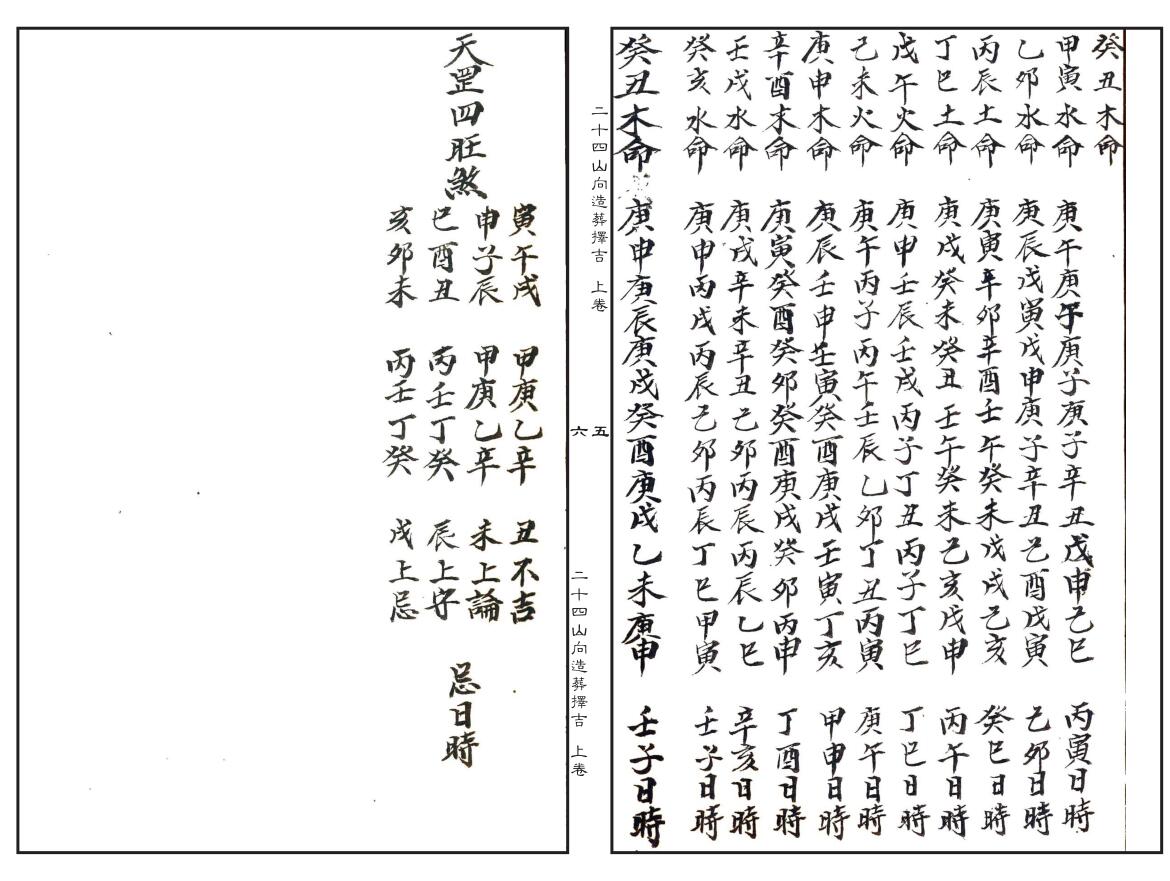 癸丑木命
甲寅水命 庚午庚午庚子庚子辛丑戊申己巳 丙寅日時
乙卯水命 庚辰戊寅戊申庚子辛丑己酉戊寅 己卯日時
丙辰土命 庚寅辛卯辛酉壬午癸未戊戌己亥 癸巳日時
丁巳土命 庚戌癸未癸丑壬午癸未己亥戊申 丙午日時
戊午火命 庚申壬辰壬戌丙子丁丑丙子丁巳 丁巳日時
己未火命 庚午丙子丙午壬辰乙卯丁丑丙寅 庚午日時
庚申木命 庚辰壬申壬寅癸酉庚戌壬寅丁亥 甲申日時
辛酉木命 庚寅癸酉癸卯癸酉庚戌癸卯丙申 丁酉日時
壬戌水命 庚戌辛未辛丑己卯丙辰丙辰乙巳 辛亥日時
癸亥水命 庚申丙戌丙辰己卯丙辰丁巳甲寅 壬子日時
癸丑木命 庚申庚辰庚戌癸酉庚戌乙未庚申 壬子日時
二十四山向造葬擇吉 上卷
五
六
二十四山向造葬擇吉 上卷
天罡四旺煞
寅午戌 甲庚乙辛 丑不吉
申子辰 甲庚乙辛 未上論
巳酉丑 丙壬丁癸 辰上守
亥卯未 丙壬丁癸 戌上忌
忌日時